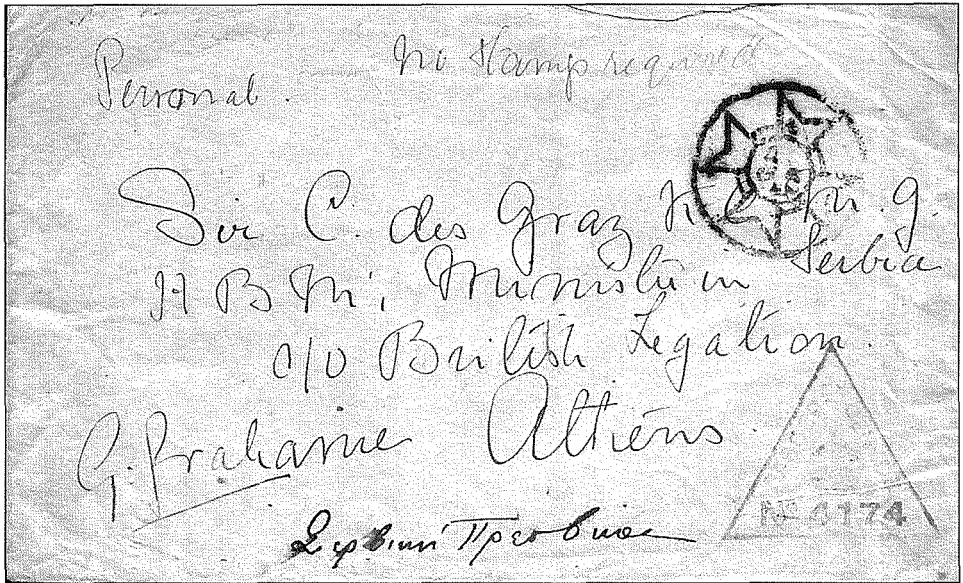 Personal. No stamp required
Sir C. des Graz K.C.M.G.
H B M's Minister in Serbia
c/o British Legation.
Athens
G. Grahame
Nº 4174